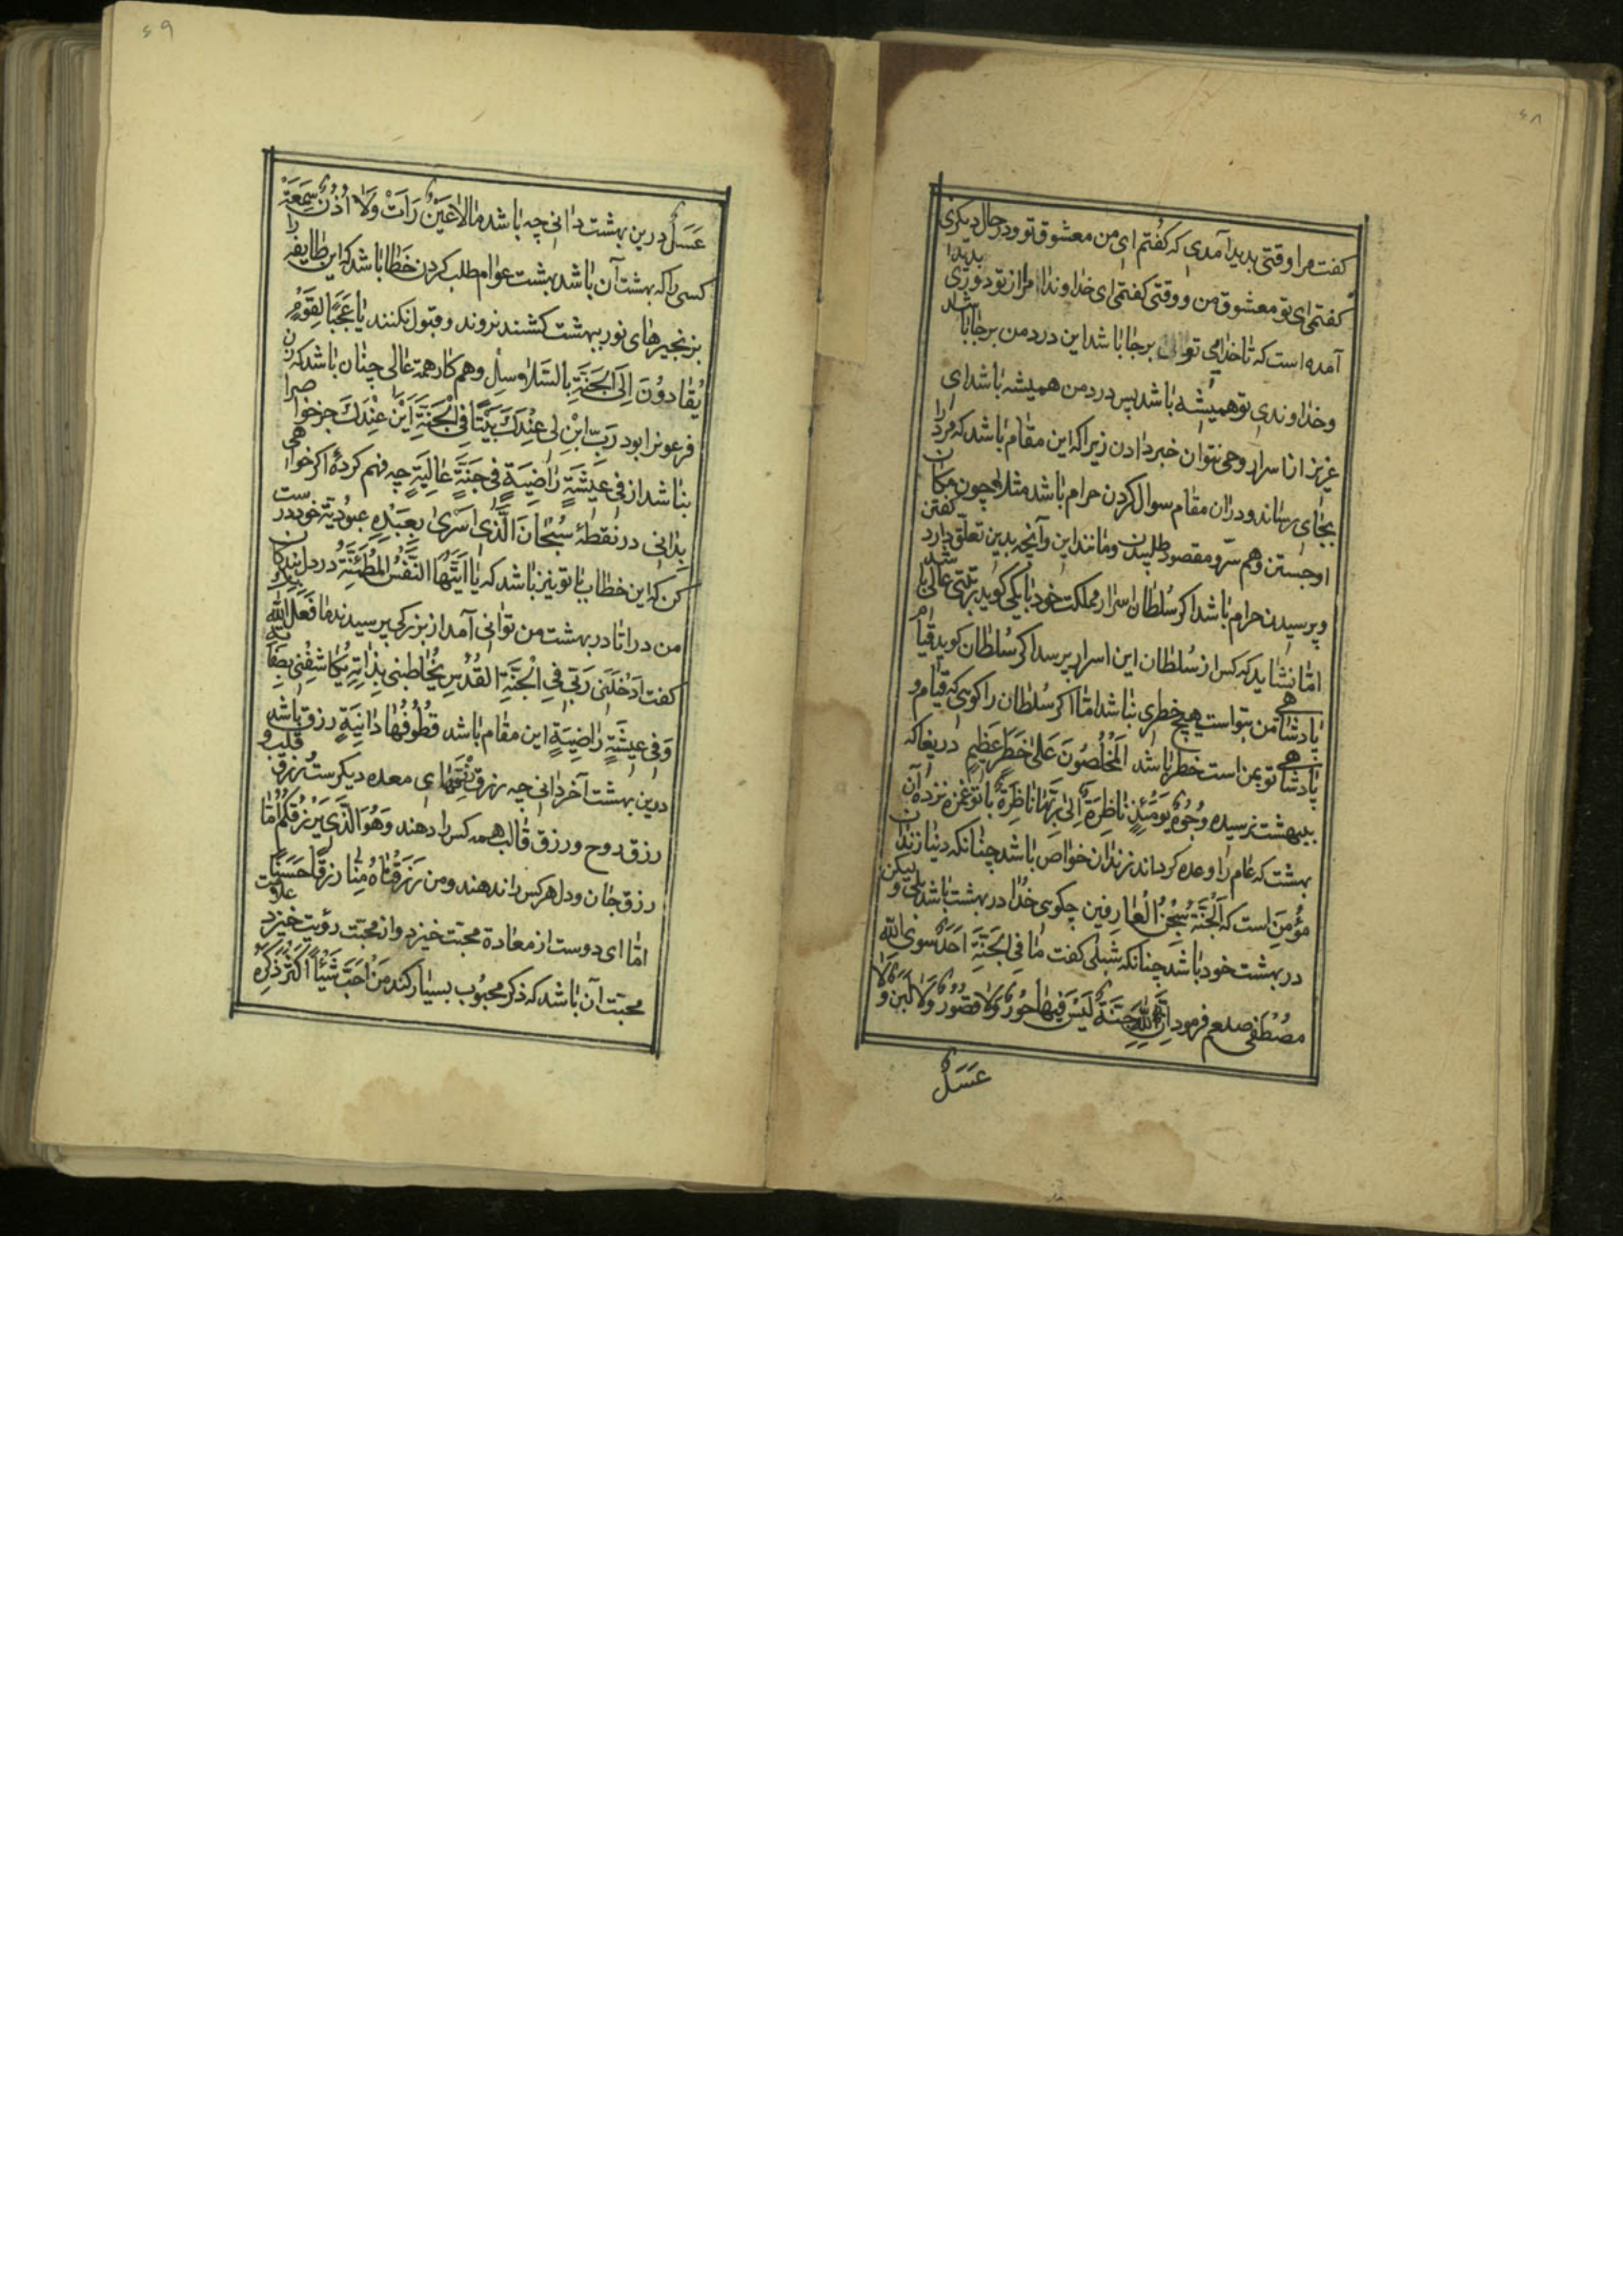 ۶۸
کفت مرا وقتی پدید آمدی که کفتم ای من معشوق تو ودر حال دیکری
کفتمی ای تو معشوق من و وقتی کفتمی ای خداوندا مرا از تو دوری پدیدا
آمده است که تا خدایی تو برجا باشد این درد من برجا باشد
وخداوندی تو همیشه باشد پس درد من همیشه باشد ای
عزیز از اسرار وحی نتوان خبر دادن زیرا که این مقام باشد که مرد را
بجای رساند ودران مقام سوال کردن حرام باشد مثلا چون مکان
اوجستن وهم سرّ ومقصود طلبیدن ومانند این وآنچه بدین تعلّق دارد کفتن
وپرسیدن حرام باشد اکر سُلطان اسرار مملکت خود با یکی کوید رتبتی عالی باشد
امّا نشاید که کس از سُلطان این اسرار پرسد اکر سُلطان کوید قیام
پادشاهی من بتواست هیچ خطری نباشد امّا اکر سُلطان را کویی که قیام و
پادشاهی تو بمن است خطر باشد اَلمُخْلِصُونَ عَلیٰ خَطَرٍ عَظِیمٍ دریغا که
ببهشت نرسیده وُجُوهٌ یَوْمَئِذٍ نَاظِرَةٌ اِلیٰ رَبِّهَا نَاظِرَةٌ باتو غمزه نزده آن
بهشت که عام را وعده کرده‌اند زندان خواص باشد چنانکه دنیا زندان
مؤمن است که اَلْجَنَّةُ سِجْنُ الْعَارِفِین چکویی خُدا در بهشت باشد بلی ولیکن
در بهشت خود باشد چنانکه شبلی کفت مَا فِی الْجَنَّةِ اَحَدٌ سِوَی اللّٰه
مصْطفی صلعم فرمود اِنَّ لِلّٰهِ جَنَّةً لَیْسَ فِیهَا حُورٌ وَلَا قصُورٌ وَلَا لَبَنٌ وَلَا
عَسَلٌ
۶۹
عَسَلٌ درین بهشت دانی چه باشد مَا لَا عَیْنٌ رَاَتْ وَلَا اُذُنٌ سَمِعَتْ
کسی را که بهشت آن باشد بهشت عوام طلب کردن خَطا باشد که این طایفه را
بزنجیرهای نور ببهشت کشند نروند وقبول نکنند یَا عَجَبًا لِقَوْمٍ
یُقَادُونَ اِلَی الْجَنَّةِ بِالسَّلَاسِلِ وهم کار همة عالی چنان باشد که زن
فرعون را بود رَبِّ ابْنِ لِی عِنْدَكَ بَیْتًا فِی الْجَنَّةِ اَیْنَ عِنْدَكَ جز خواص را
نباشد از فِی عِیشَةٍ رَاضِیَةٍ فِی جَنَّةٍ عَالِیَةٍ چه فهم کردهٔ اکر خواهی
بدانی در نقطهٔ سُبْحَانَ الَّذِی اَسْرَیٰ بِعَبْدِهِ عبُودیّة خود درست
کن که این خطاب با تو نیز باشد که یَا اَیَّتُهَا النَّفْسُ الْمُطْمَئِنَّةُ در دل بندکان
من درآ تا در بهشت من توانی آمد از بزرکی پرسیدند مَا فَعَلَ اللّٰهُ بِكَ
کفت اَدْخَلَنِی رَبِّی فِی الْجَنَّةِ الْقُدْسِ یُخَاطِبُنِی بِذَاتِهِ یُکَاشِفُنِی بِصِفَاتِهِ
وَفِی عِیشَةٍ رَاضِیَةٍ این مقام باشد قُطُوفُهَا دَانِیَةٍ رزق باشد
درین بهشت آخر دانی چه رزق لقمهای معده دیکرست رزق قلب و
رزق روح ورزق قالب همه کس را دهند وَهُوَ الَّذِی یَرْزُقُکُمْ امّا
رزق جان ودل هر کس را ندهند ومن رَزَقْنَاهُ مِنَّا رِزْقًا حَسَنًا
امّا ای دوست از معادة محبّت خیزد واز محبّت رؤیت خیزد علامت
محبّت آن باشد که ذکر محبُوب بسیار کند مَنْ اَحَبَّ شَیْئًا اَکْثَرَ ذِکْرَهُ